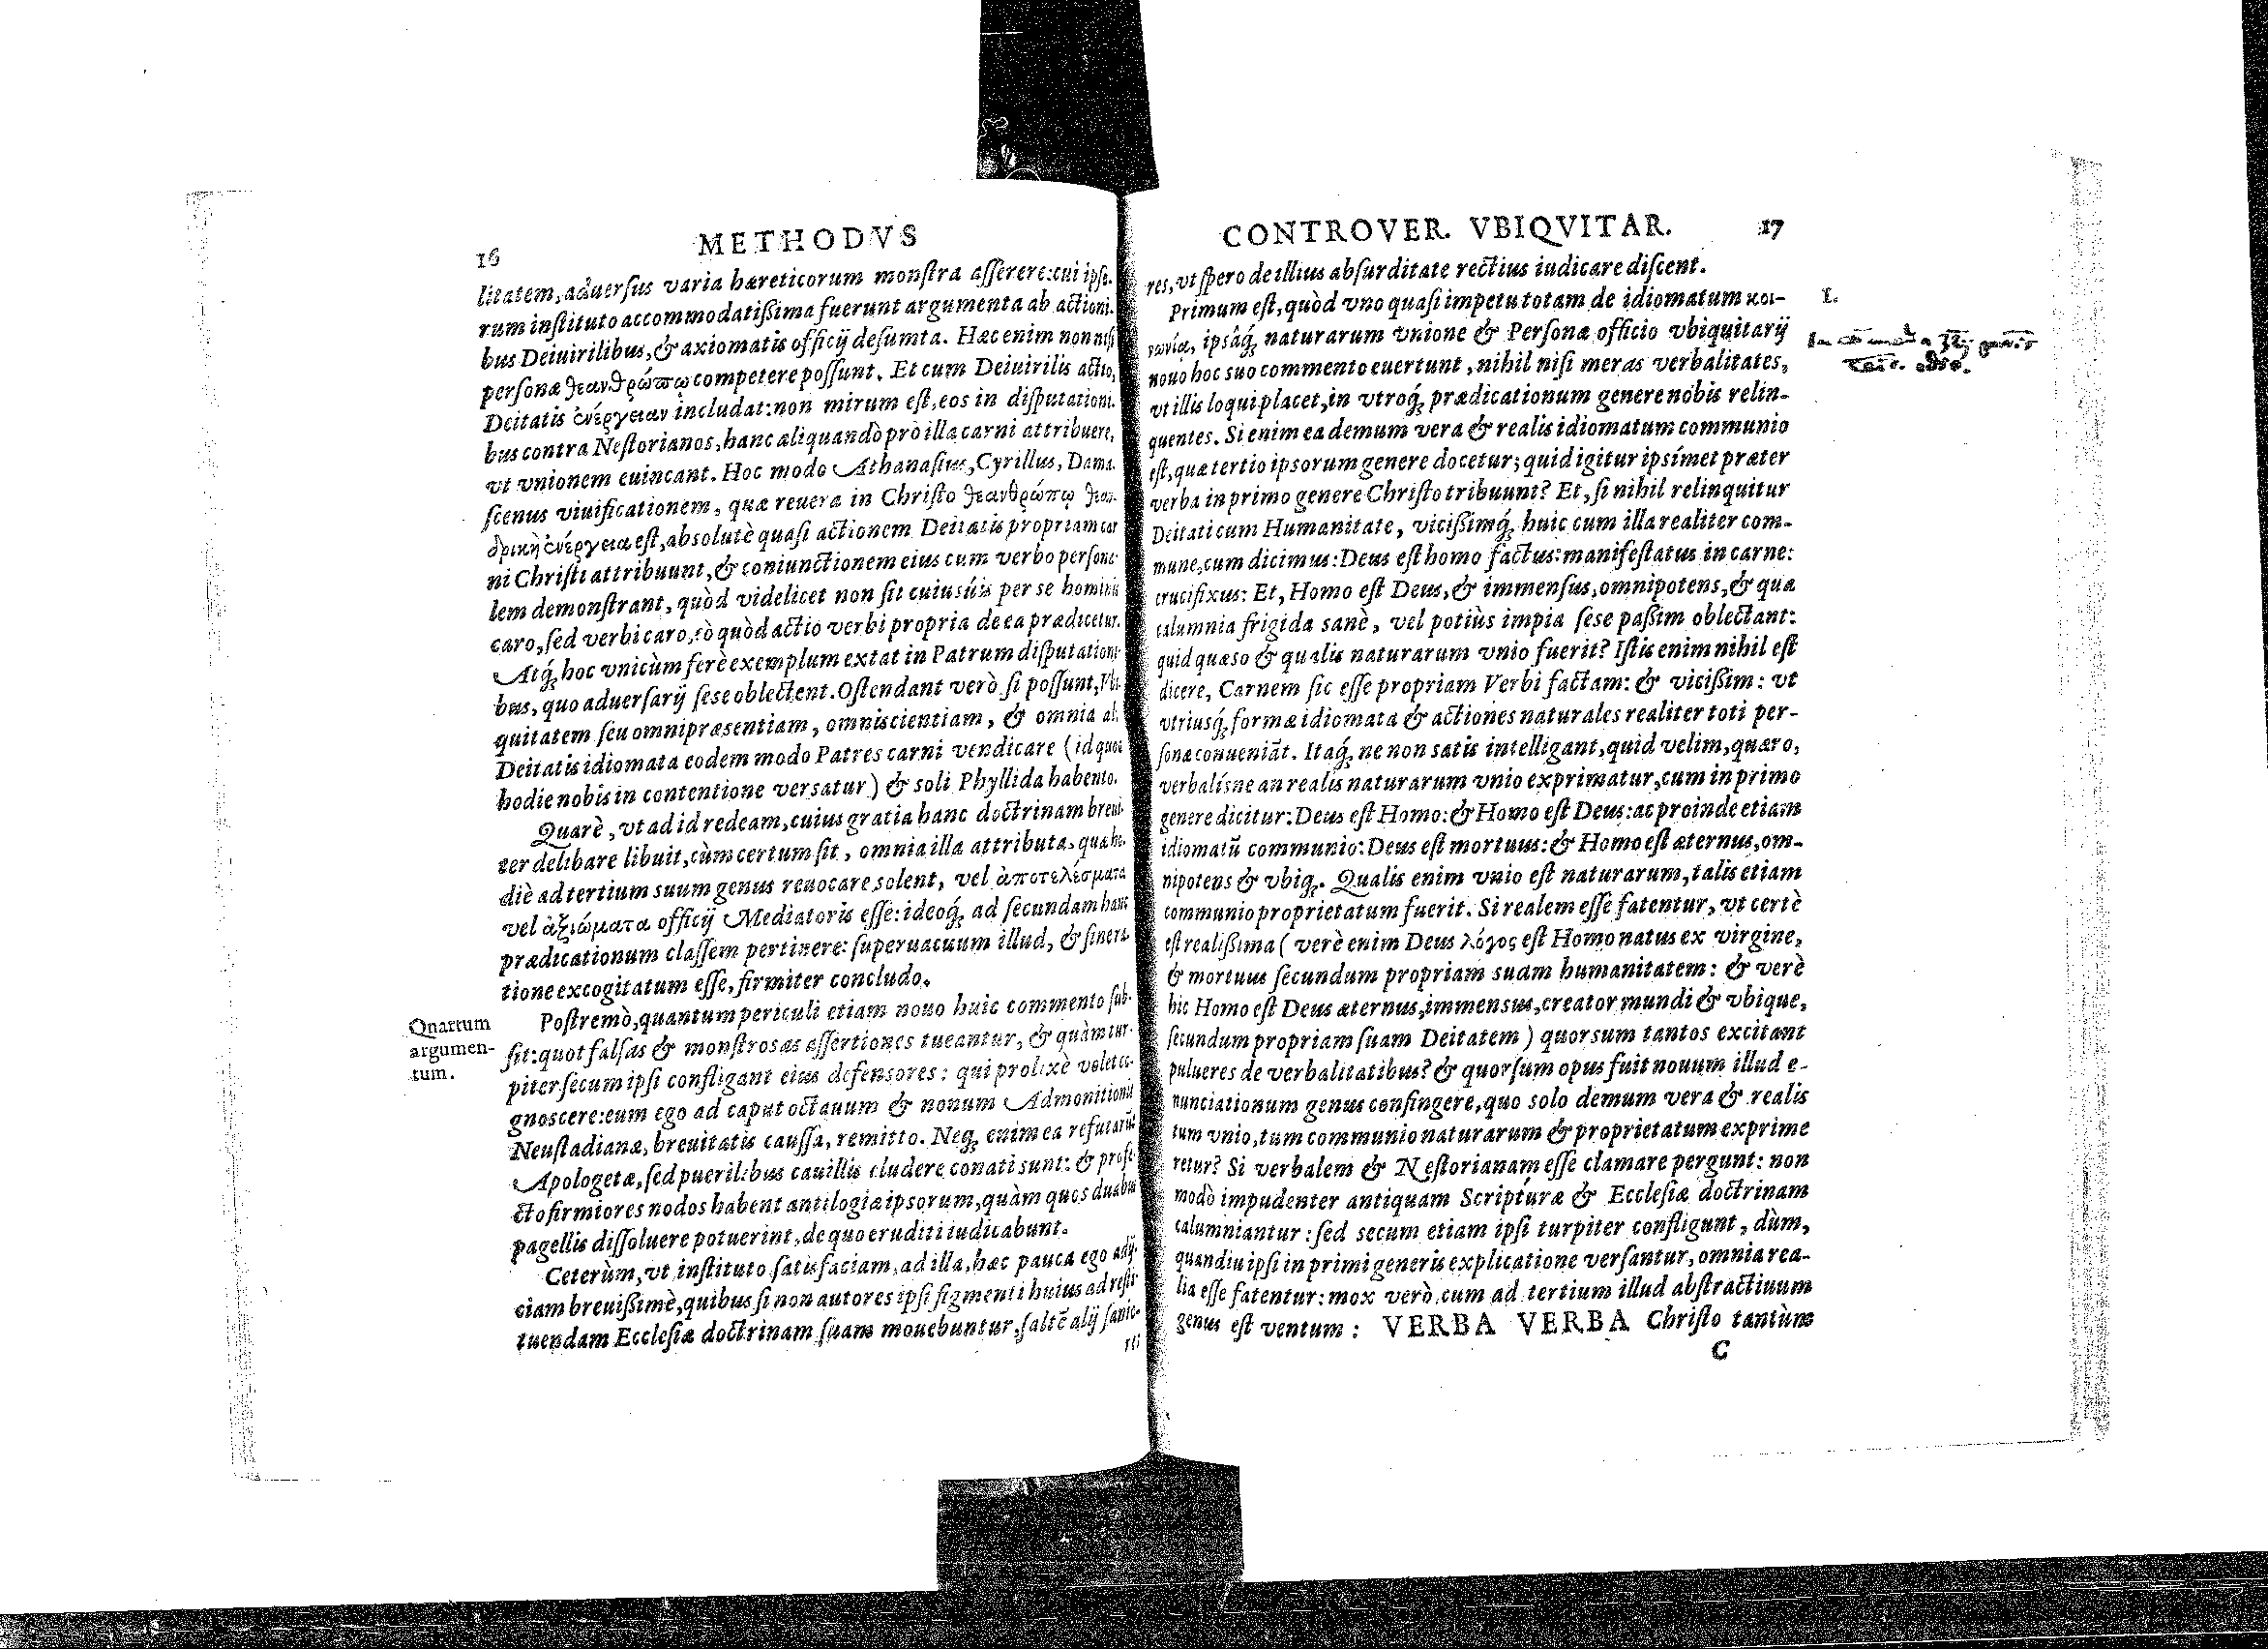 16
METHODVS
litatem, aduersus varia hæreticorum monstra asserere: cui ipso-
rum instituto accommodatißima fuerunt argumenta ab actioni-
bus Deiuirilibus, & axiomatis officij desumta. Hæc enim non nisi
personæ θεανθρώπῳ competere possunt. Et cum Deiuirilis actio,
Deitatis ἐνέργειαν includat: non mirum est, eos in disputationi-
bus contra Nestorianos, hanc aliquandò prò illa carni attribuere,
vt vnionem euincant. Hoc modo Athanasius, Cyrillus, Dama-
scenus viuificationem, quæ reuera in Christo θεανθρώπῳ θεαν-
δρικὴ ἐνέργεια est, absolutè quasi actionem Deitatis propriam car
ni Christi attribuunt, & coniunctionem eius cum verbo persona-
lem demonstrant, quòd videlicet non sit cuiusuis per se hominis
caro, sed verbi caro, eò quòd actio verbi propria de ea prædicetur.
Atq́; hoc vnicùm ferè exemplum extat in Patrum disputationi-
bus, quo aduersarij sese oblectent. Ostendant verò si possunt, Vbi-
quitatem seu omnipræsentiam, omniscientiam, & omnia alia
Deitatis idiomata eodem modo Patres carni vendicare (id quod
hodie nobis in contentione versatur) & soli Phyllida habento.
Quarè, vt ad id redeam, cuius gratia hanc doctrinam breui-
ter delibare libuit, cùm certum sit, omnia illa attributa, quæ ho-
diè ad tertium suum genus reuocare solent, vel ἀποτελέσματα
vel ἀξιώματα officij Mediatoris esse: ideoq́; ad secundam hanc
prædicationum classem pertinere: superuacuum illud, & sine ra-
tione excogitatum esse, firmiter concludo.
Quartum
argumen-
tum.
Postremò, quantum periculi etiam nouo huic commento sub-
sit: quot falsas & monstrosas assertiones tueantur, & quàm tur-
piter secum ipsi confligant eius defensores: qui prolixè volet co-
gnoscere: eum ego ad caput octauum & nonum Admonitionis
Neustadianæ, breuitatis caussa, remitto. Neq; enim ea refutarũt
Apologetæ, sed puerilibus cauillis eludere conati sunt: & profe-
cto firmiores nodos habent antilogiæ ipsorum, quàm quos duabus
pagellis dissoluere potuerint, de quo eruditi iudicabunt.
Ceterùm, vt instituto satisfaciam, ad illa, hæc pauca ego adij-
ciam breuißimè, quibus si non autores ipsi figmenti huius ad resti-
tuendam Ecclesiæ doctrinam suam mouebuntur, saltẽ alij sanio-
res
CONTROVER. VBIQVITAR.
17
res, vt spero de illius absurditate rectius iudicare discent.
I.
Primum est, quòd vno quasi impetu totam de idiomatum κοι-
νωνίᾳ, ipsâq́; naturarum vnione & Personæ officio vbiquitarij
nouo hoc suo commento euertunt, nihil nisi meras verbalitates,
vt illis loqui placet, in vtroq́; prædicationum genere nobis relin-
quentes. Si enim ea demum vera & realis idiomatum communio
est, quæ tertio ipsorum genere docetur; quid igitur ipsímet præter
verba in primo genere Christo tribuunt? Et, si nihil relinquitur
Deitati cum Humanitate, vicißimq́; huic cum illa realiter com-
mune, cum dicimus: Deus est homo factus: manifestatus in carne:
crucifixus: Et, Homo est Deus, & immensus, omnipotens, & qua
calumnia frigida sanè, vel potiùs impia sese paßim oblectant:
quid quæso & qualis naturarum vnio fuerit? Istis enim nihil est
dicere, Carnem sic esse propriam Verbi factam: & vicißim: vt
vtriusq́; formæ idiomata & actiones naturales realiter toti per-
sonæ conueniãt. Itaq́; ne non satis intelligant, quid velim, quæro,
verbalísne an realis naturarum vnio exprimatur, cum in primo
genere dicitur: Deus est Homo: & Homo est Deus: ac proinde etiam
idiomatũ communio: Deus est mortuus: & Homo est æternus, om-
nipotens & vbiq;. Qualis enim vnio est naturarum, talis etiam
communio proprietatum fuerit. Si realem esse fatentur, vt certè
est realißima (verè enim Deus λόγος est Homo natus ex virgine,
& mortuus secundum propriam suam humanitatem: & verè
hic Homo est Deus æternus, immensus, creator mundi & vbique,
secundum propriam suam Deitatem) quorsum tantos excitant
pulueres de verbalitatibus? & quorsum opus fuit nouum illud e-
nunciationum genus confingere, quo solo demum vera & realis
tum vnio, tum communio naturarum & proprietatum exprime
retur? Si verbalem & Nestorianam esse clamare pergunt: non
modò impudenter antiquam Scripturæ & Ecclesiæ doctrinam
calumniantur: sed secum etiam ipsi turpiter confligunt, dùm,
quandiu ipsi in primi generis explicatione versantur, omnia rea-
lia esse fatentur: mox verò, cum ad tertium illud abstractiuum
genus est ventum: VERBA VERBA Christo tantùm
C